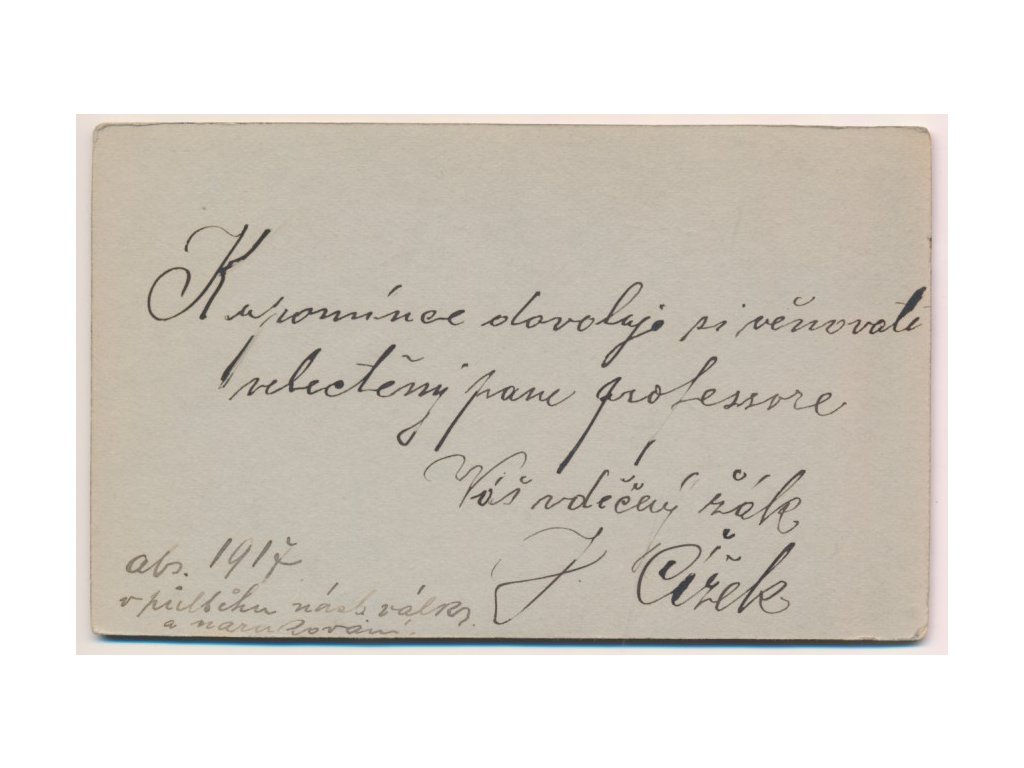 K upomínce dovoluje si věnovati
velectěný pane professore
Váš vděčný žák
J. Čížek
abs. 1917
v průběhu násl. války
a narukování.